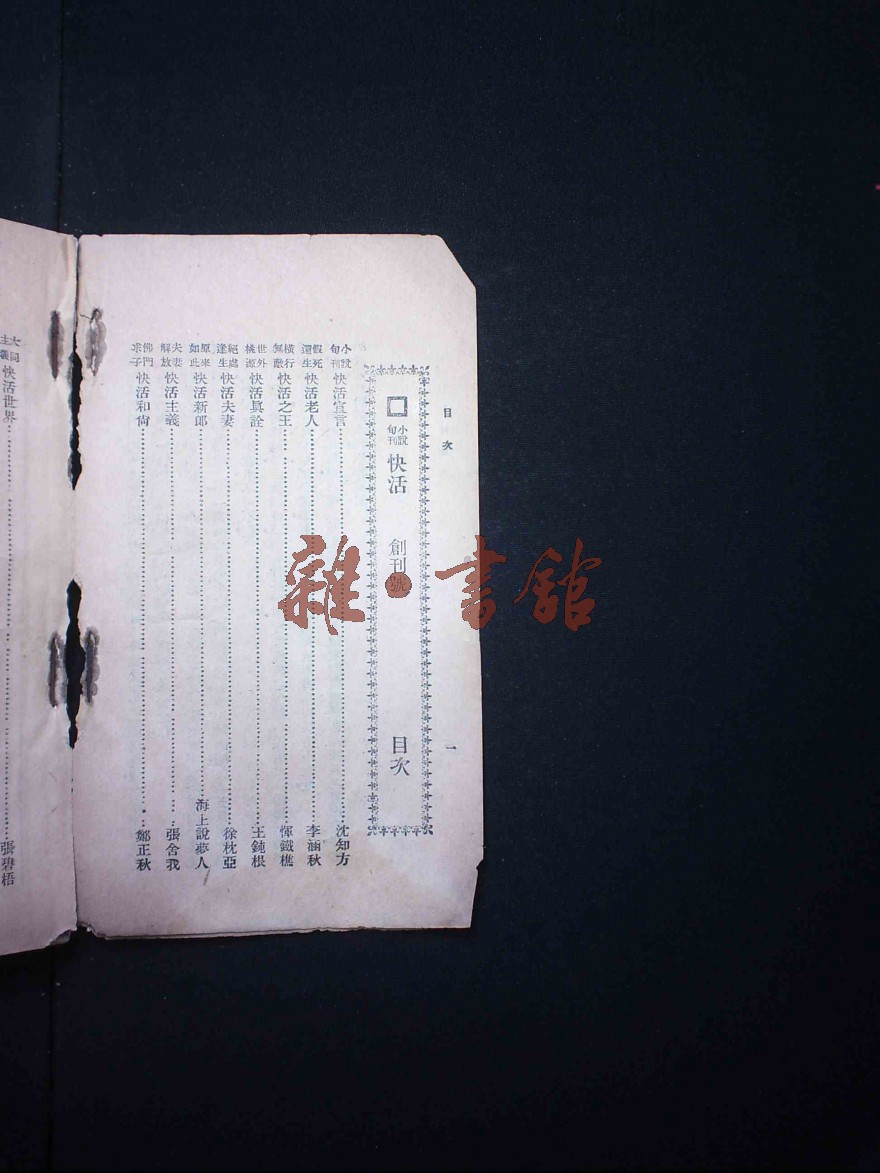 目次
一
小說旬刊 快活 創刊號 目次
小說旬刊 快活宣言 沈知方
假死還生 快活老人 李涵秋
橫行無敵 快活之王 惲鐵樵
世外桃源 快活眞詮 王鈍根
絕處逢生 快活夫妻 徐枕亞
原來如此 快活新郎 海上說夢人
夫妻解放 快活主義 張舍我
佛門求子 快活和尙 鄭正秋
大同主義 快活世界 張碧梧
雜·書館